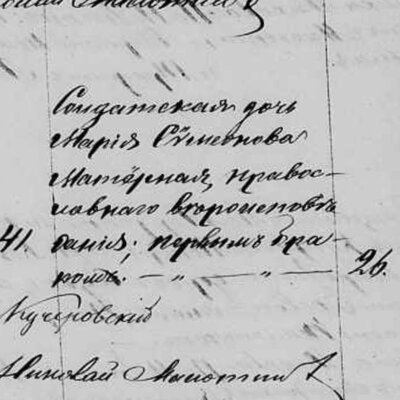 Солдатская дочь
Марія Сѵмеонова
Матёрная, право-
славнаго вѣроисповѣ-
41. данія; первымъ бра-
комъ. — „ — „ — 26.
Кучеровскій
Николай